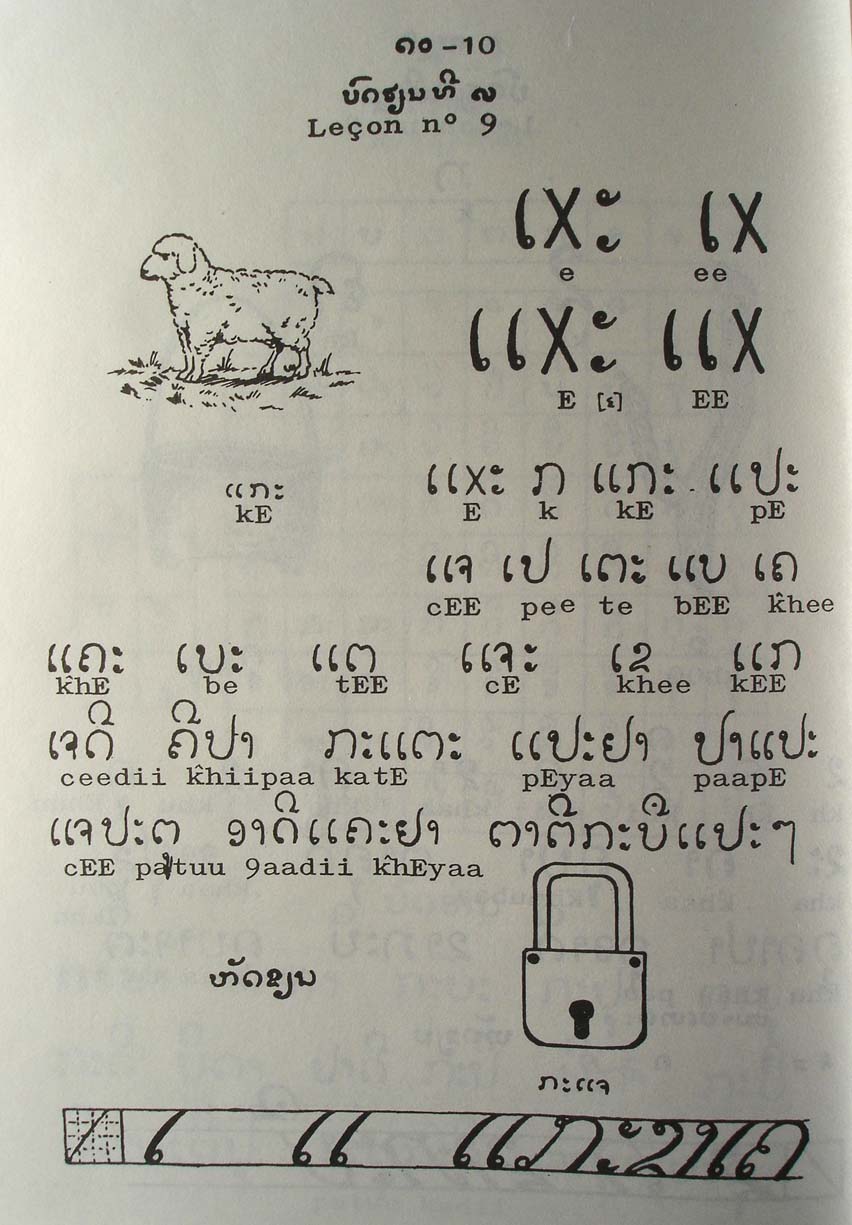 ໑໐ -10
ບົດຮຽນທີ ໙
Leçon nº 9
ເxະ ເx
e ee
ແxະ ແx
E [ε] EE
ແກະ
kE
ແxະ ກ ແກະ ແປະ
E k kE pE
ແຈ ເປ ເຕະ ແບ ເຄ
cEE pee te bEE k̂hee
ແຄະ ເບະ ແຕ ແຈະ ເຂ ແກ
k̂hE be tEE cE khee kEE
ເຈດີ ຄີປາ ກະແຕະ ແປະຢາ ປາແປະ
ceedii k̂hiipaa katE pEyaa paapE
ແຈປະຕ ງາດີແຄະຢາ
cEE patuu 9aadii k̂hEyaa
ຫັດຂຽນ
ກະແຈ
ເ ແ